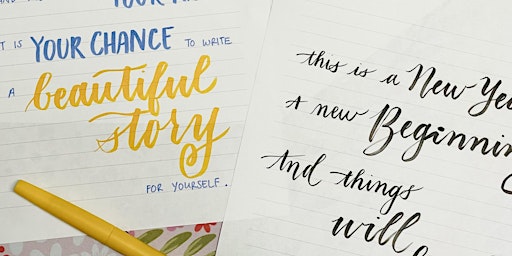 YOUR
IS YOUR CHANCE TO WRITE
A beautiful
story
FOR YOURSELF.
this is a New
A new
And things
will